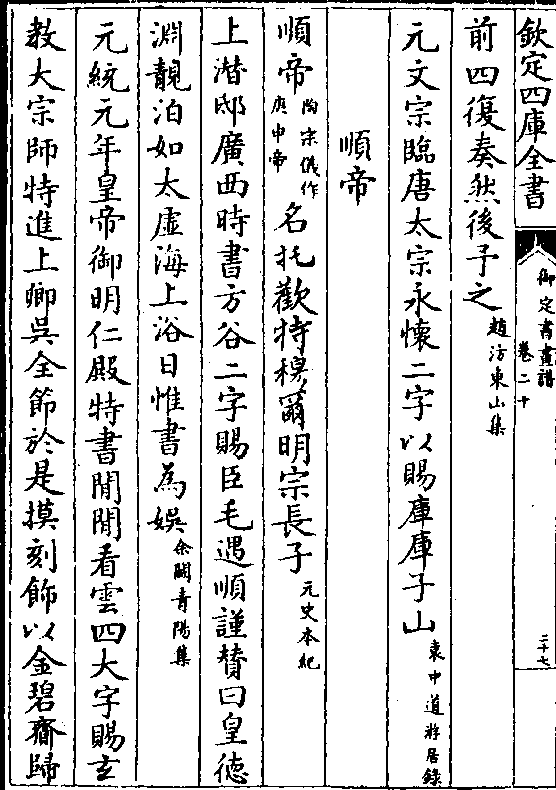 欽定四庫全書
御定書畫譜
卷二十
二十七
前四復奏然後予之趙汸東山集
元文宗臨唐太宗永懷二字以賜庫庫子山袁中道游居錄
順帝
順帝陶宗儀作庚申帝名托歡特穆爾明宗長子元史本紀
上潛邸廣西時書方谷二字賜臣毛遇順謹賛曰皇德
淵靚泊如太虛海上浴日惟書為娛余闕青陽集
元統元年皇帝御明仁殿特書閒閒看雲四大字賜玄
教大宗師特進上卿吳全節於是摸刻飾以金碧齎歸